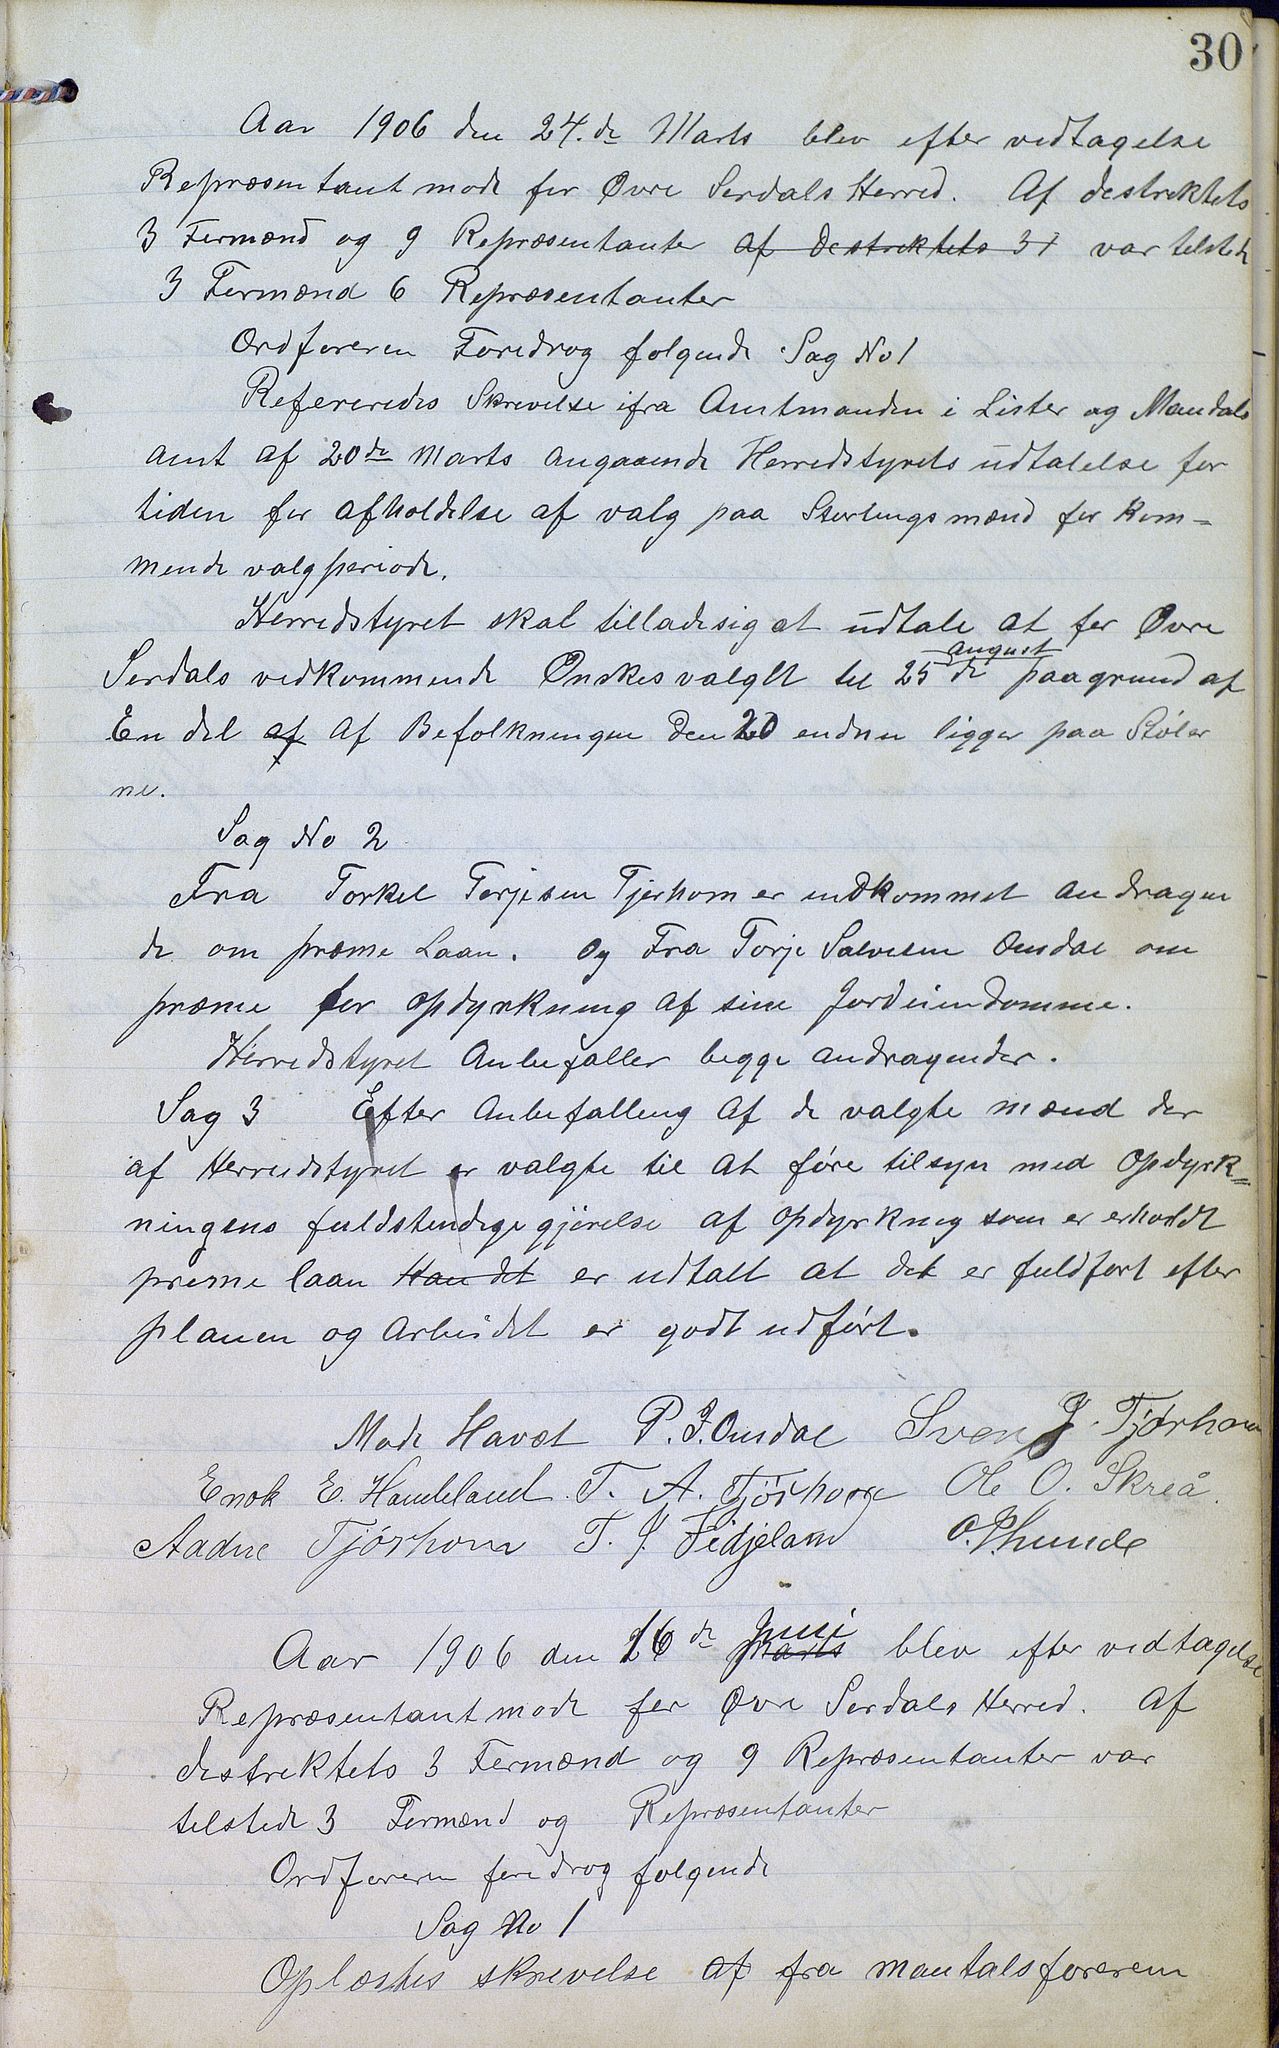 30
Aar 1906 den 24.de Marts blev efter vedtagelse
Repræsentant mode for Øvre Serdals Herred. Af destrektets
3 Formænd og 9 Repræsentanter af destrektets 3 var telstede
3 Formænd 6 Repræsentanter
Ordforeren Foredrog folgende Sag No 1
Refereredes Skrevelse ifra Amtmanden i Lister og Mandals
amt af 20de Marts angaaende Herredstyrets udtalelse for
tiden for afholdelse af valg paa Stortengsmænd for kom-
mende valgperiode.
Herredstyret skal tilladesig at udtale at for Øvre
august
Serdals vedkommende Ønskes valglt tel 25 de paagrund af
En del af af Befolkningen den 20 endnu ligger paa Støler
ne.
Sag No 2
Fra Torkel Terjesen Tjørhom er indkommet andragen
de om præme Laan. og Fra Torje Salvesen Omdal om
præme for opdyrkning af sine Jordeiendomme.
Herredstyret Anbefaller begge andragender.
Sag 3 Efter Anbefalleng af de valgte mænd der
af Herredstyret er valgte til at føre tilsyn med opdyrk=
ningens fuldstendige gjørelse af opdyrkneg som er erholdt
preme laan Han det er udtalt at det er fuldført efter
planen og Arbeidet er godt udført.
Mode Hævet P. J. Omdal Sven J. Tjørhom
Enok E. Haneland T. A. Tjørhom Ole O. Skreå.
Aadne Tjørhom T. J. Fidjeland O. P. Kunde
Juni
Aar 1906 den 16 de Marts blev efter vedtagelse
Repræsentant mode for Øvre Serdals Herred. Af
destrektets 3 Formænd og 9 Repræsentanter var
telstede 3 Formænd og Repræsentanter
Ordforeren foredrog folgende
Sag No 1
Oplæstes skrevelse af fra mantalsforeren